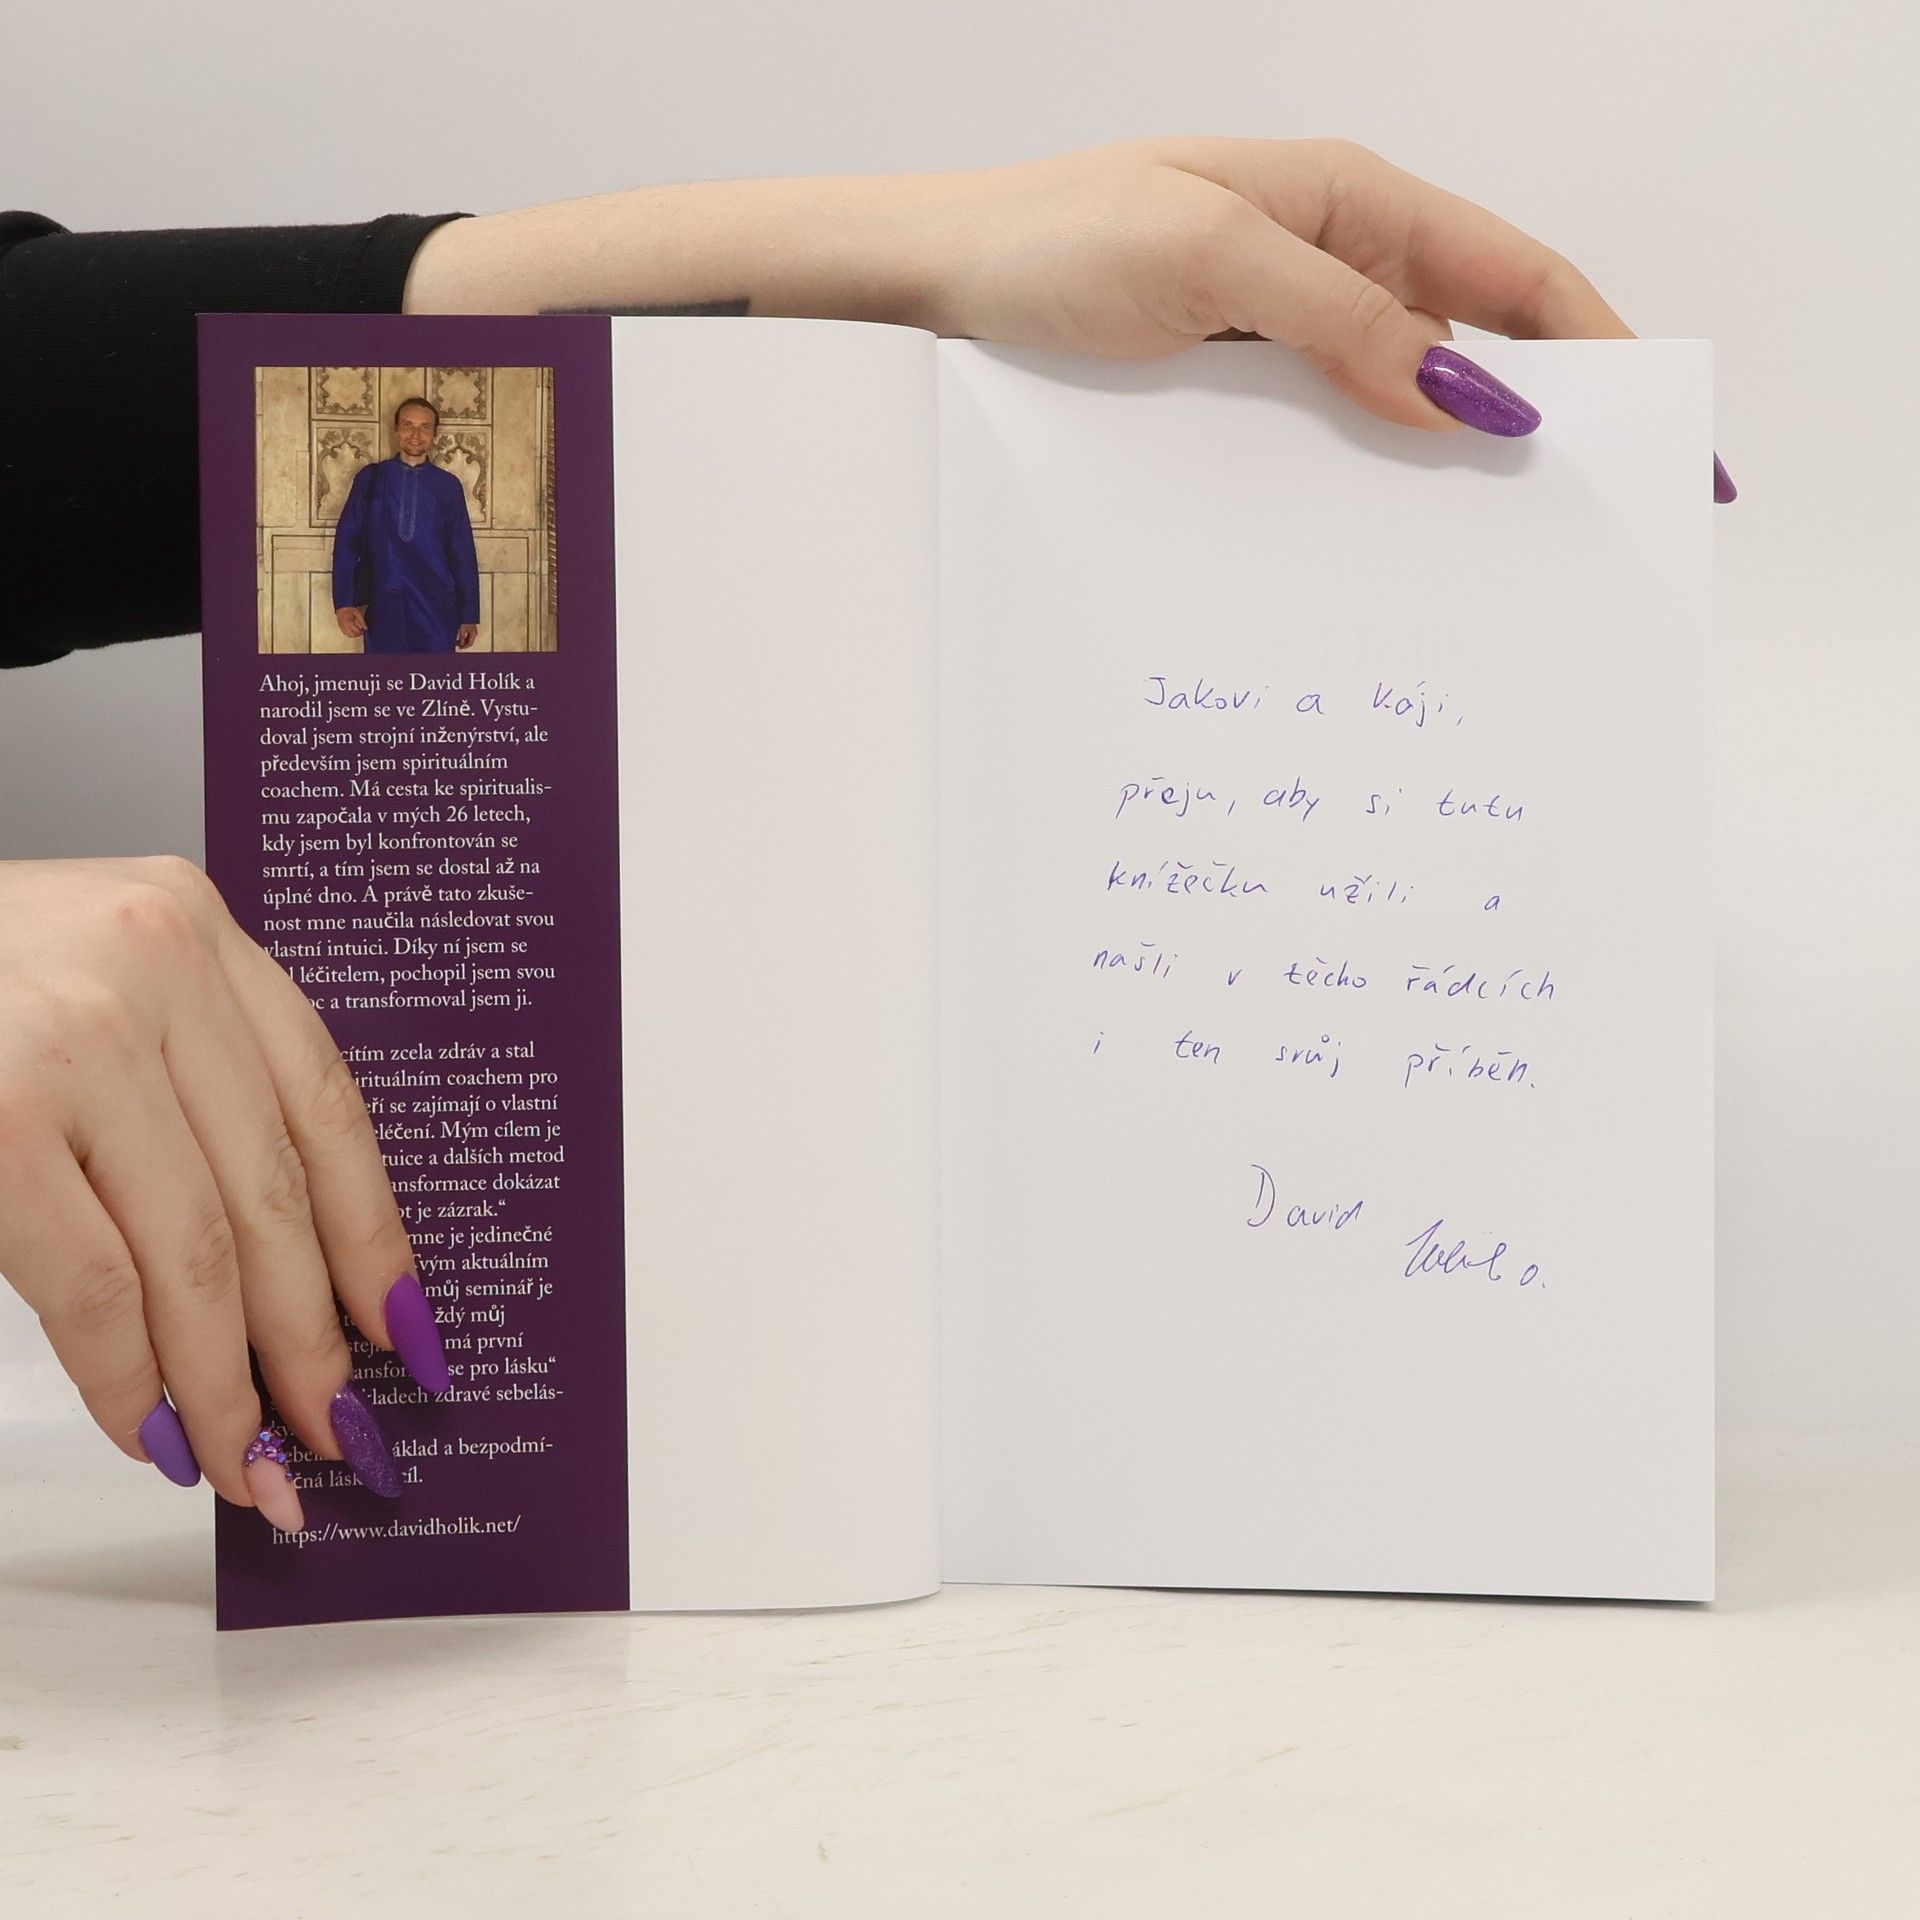 Ahoj, jmenuji se David Holík a
narodil jsem se ve Zlíně. Vystu-
doval jsem strojní inženýrství, ale
především jsem spirituálním
coachem. Má cesta ke spiritualis-
mu započala v mých 26 letech,
kdy jsem byl konfrontován se
smrtí, a tím jsem se dostal až na
úplné dno. A právě tato zkuše-
nost mne naučila následovat svou
vlastní intuici. Díky ní jsem se
léčitelem, pochopil jsem svou
a transformoval jsem ji.
cítím zcela zdráv a stal
coachem pro
se zajímají o vlastní
Mým cílem je
a dalších metod
dokázat
je zázrak.“
mne je jedinečné
aktuálním
můj seminář je
můj
má první
se pro lásku“
zdravé sebelás-
a bezpodmí-
cíl.
https://www.davidholik.net/
Jakovi a Káji,
přeju, aby si tutu
knížečku užili a
našli v těcho řádcích
i ten svůj příběh.
David